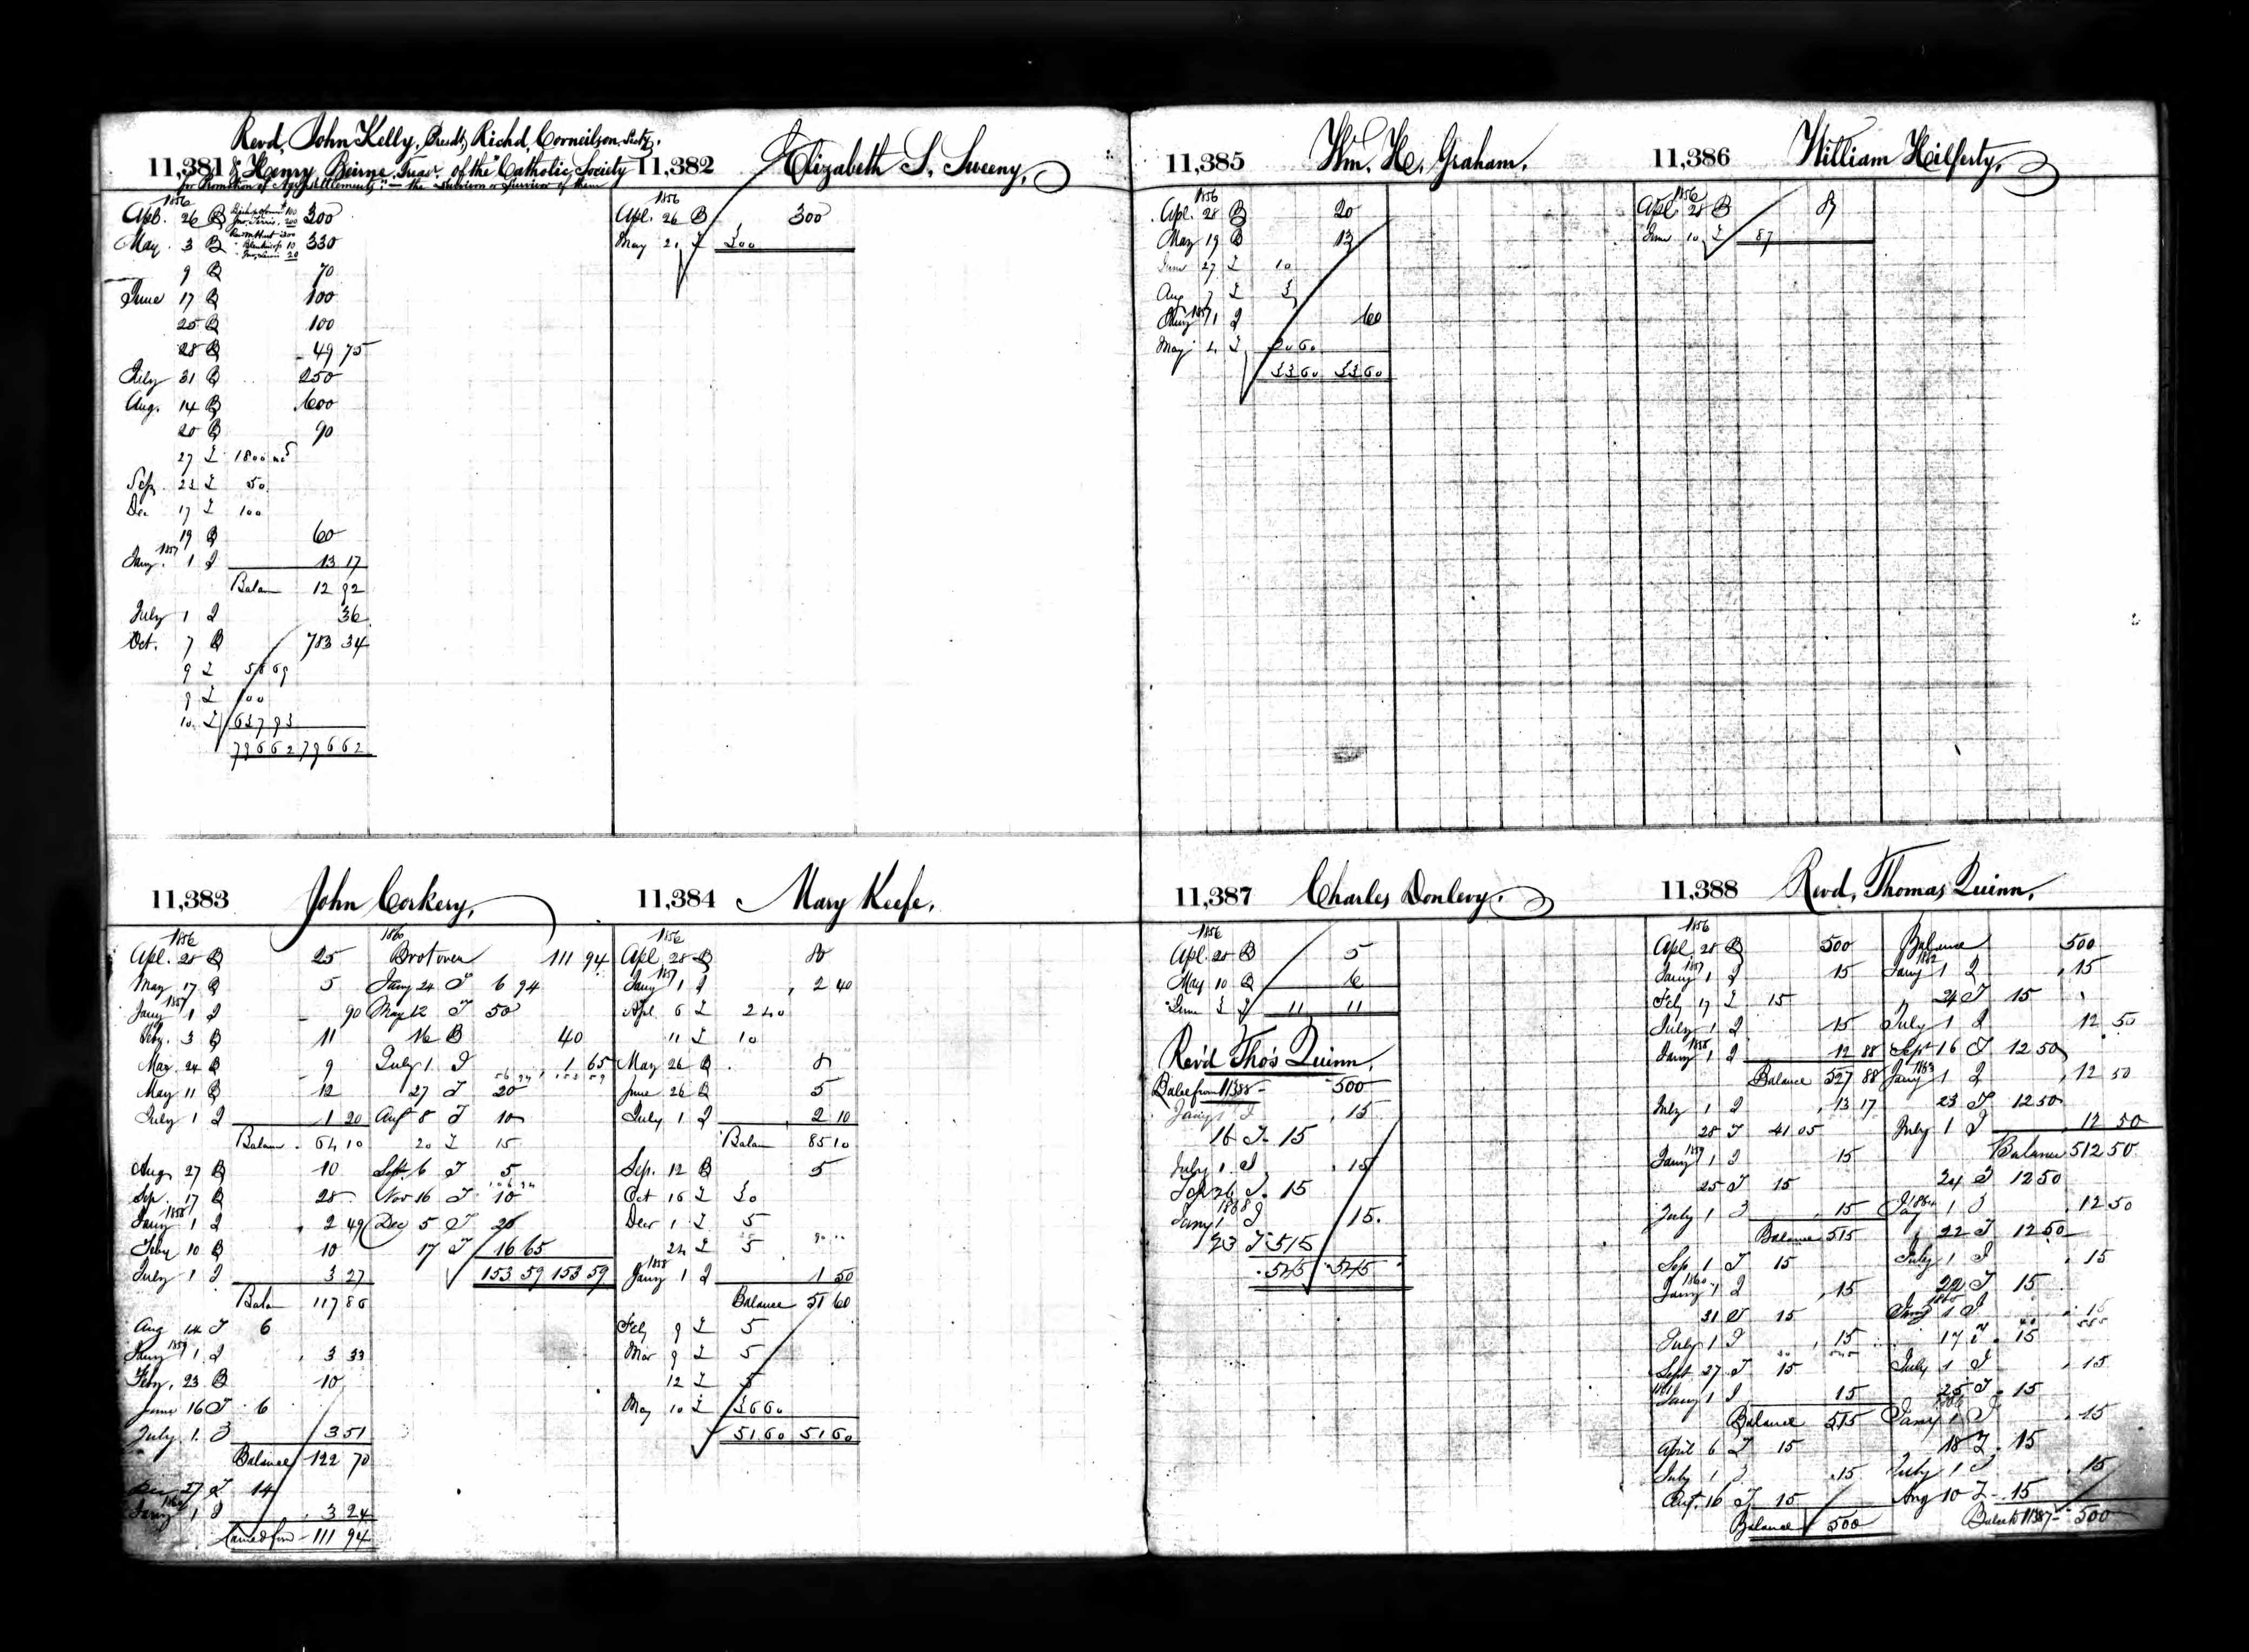 Revd, John Kelly, Presdt, Richd, Corneilson, Secty,
11,381 & Henry Beirne, Treasr. of the "Catholic Society
for Promotion of
1856
Apl. 26 B 300
May. 3 B 330
9 B 70
June 17 B 100
25 B 100
28 B 49 75
July 31 B 250
Aug. 14 B 600
20 B 90
27 T 1800
Sep. 22 T 50
Dec 17 T 100
19 B 60
1857
Jany. 1 I 13 17
Balan 12 92
July 1 I 36
Oct. 7 B 783 34
9 T 58 69
9 T 100
10 T 637 93
796 62 796 62
11,382 Elizabeth S. Sweeny,
1856
Apl. 26 B 300
May 21 T 300
11,383 John Corkery,
1856
Apl. 28 B 25
May 17 B 5
1857
Jany 1 I 90
Feby. 3 B 11
Mar. 24 B 9
May 11 B 12
July 1 I 1 20
Balan 64 10
Aug 27 B 10
Sep. 17 B 28
1858
Jany 1 I 2 49
Feby 10 B 10
July 1 I 3 27
Bala 117 86
Aug 14 T 6
1859
Jany 1 I 3 33
Feby. 23 B 10
June 16 T 6
July 1 I 3 51
Balance 122 70
Dec 27 T 14
1860
Jany 1 I 3 24
Carried ford 111 94
1860
Brot over 111 94
Jany 24 T 6 94
May 12 T 50
16 B 40
July 1 I 1 65
56 94 153 59
27 T 20
Augt 8 T 10
20 T 15
Sept 6 T 5
Nov 16 T 10
Dec 5 T 20
17 T 16 65
153 59 153 59
11,384 Mary Keefe,
1856
Apl. 28 B 80
1857
Jany 1 I 2 40
Apl 6 T 2 40
11 T 10
May 26 B 8
June 26 B 5
July 1 I 2 10
Balan 85 10
Sep. 12 B 5
Oct 16 T 30
Decr 1 T 5
24 T 5
1858
Jany 1 I 1 50
Balance 51 60
Feb 9 T 5
Mar 9 T 5
12 T 5
May 10 T 36 60
51 60 51 60
11,385 Wm. H. Graham.
1856
Apl. 28 B 20
May 19 B 13
June 27 T 10
Aug 7 T 3
1857
Jany 1 I 60
May 2 T 20 60
33 60 33 60
11,386 William Hilferty,
1856
Apl 28 B 87
June 10 T 87
11,387 Charles Donlevy.
1856
Apl. 28 B 5
May 10 B 6
June 3 T 11 11
Rev'd Tho's Quinn.
Balce from 11388 - 500
Jany 1 I 15
16 T 15
July 1 I 15
Sep 26 T. 15
1868
Jany 1 I 15.
23 T 515
545 545
11,388 Revd, Thomas Quinn,
1856
Apl. 28 B 500
1857
Jany 1 I 15
Feb 17 T 15
July 1 I 15
1858
Jany 1 I 12 88
Balance 527 88
July 1 I 13 17
28 T 41 05
1859
Jany 1 I 15
25 T 15
July 1 I 15
Balance 515
Sep 1 T 15
1860
Jany 1 I 15
31 T 15
July 1 I 15
Sept 27 T 15
1861
Jany 1 I 15
Balance 515
April 6 T 15
July 1 I 15
Augt. 16 T 15
Balance 500
Balance 500
1862
Jany 1 I 15
24 T 15
July 1 I 12 50
Sept 16 T 12 50
1863
Jany 1 I 12 50
23 T 12 50
July 1 I 12 50
Balance 512 50
24 T 12 50
1864
Jany 1 I 12 50
22 T 12 50
July 1 I 15
22 T 15
1865
Jany 1 I 15
17 T 15
July 1 I 15
25 T 15
1866
Jany 1 I 15
18 T 15
July 1 I 15
Aug 10 T 15
Balce to 11387 - 500